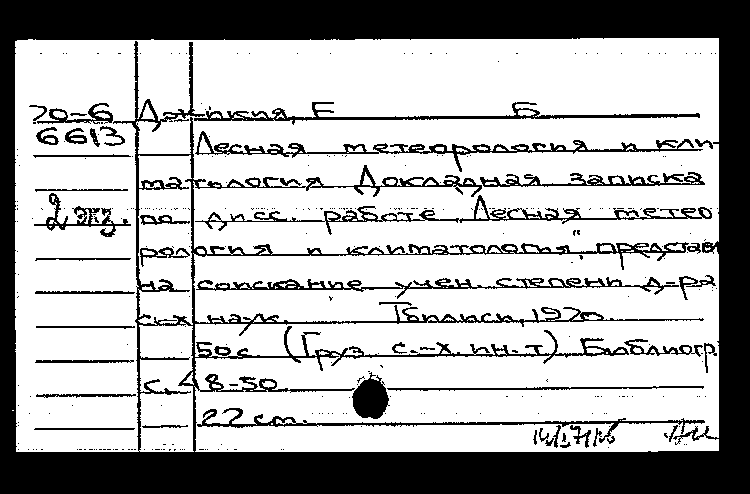 70-6 Джикия, Е Б
6613
Лесная метеорология и кли-
матология Докладная записка
2 экз. по дисс. работе „Лесная метео
рология и климатология", представ
на соискание учен. степени д-ра
с.-х наук. Тбилиси, 1970.
50 с. (Груз с.-х. ин-т) Библиогр
с. 48-50
22 см.